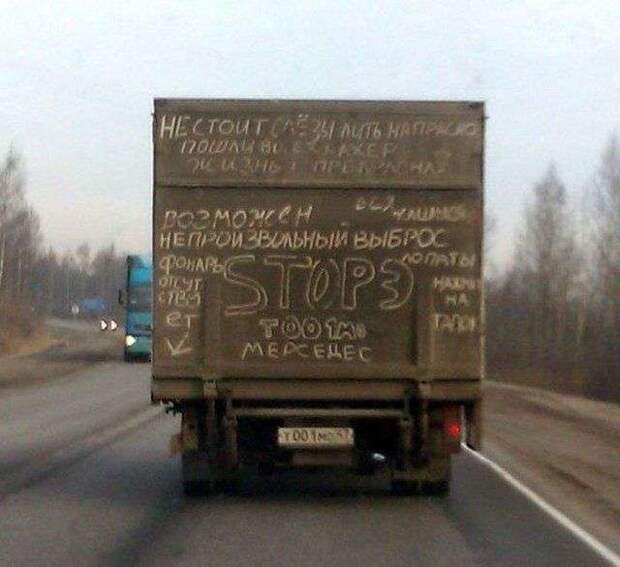 НЕ СТОИТ СЛЁЗЫ ЛИТЬ НАПРАСНО
ПОШЛИ ВСЕХ
ЖИЗНЬ ПРЕКРАСНА
ВОЗМОЖЕН
НЕПРОИЗВОЛЬНЫЙ ВЫБРОС
ЛОПАТЫ
ФОНАРЬ
ОТСУТ
СТВУ
ЕТ
STOPЭ
НАЖМИ
НА
Т001МО
МЕРСЕДЕС
Т001МО